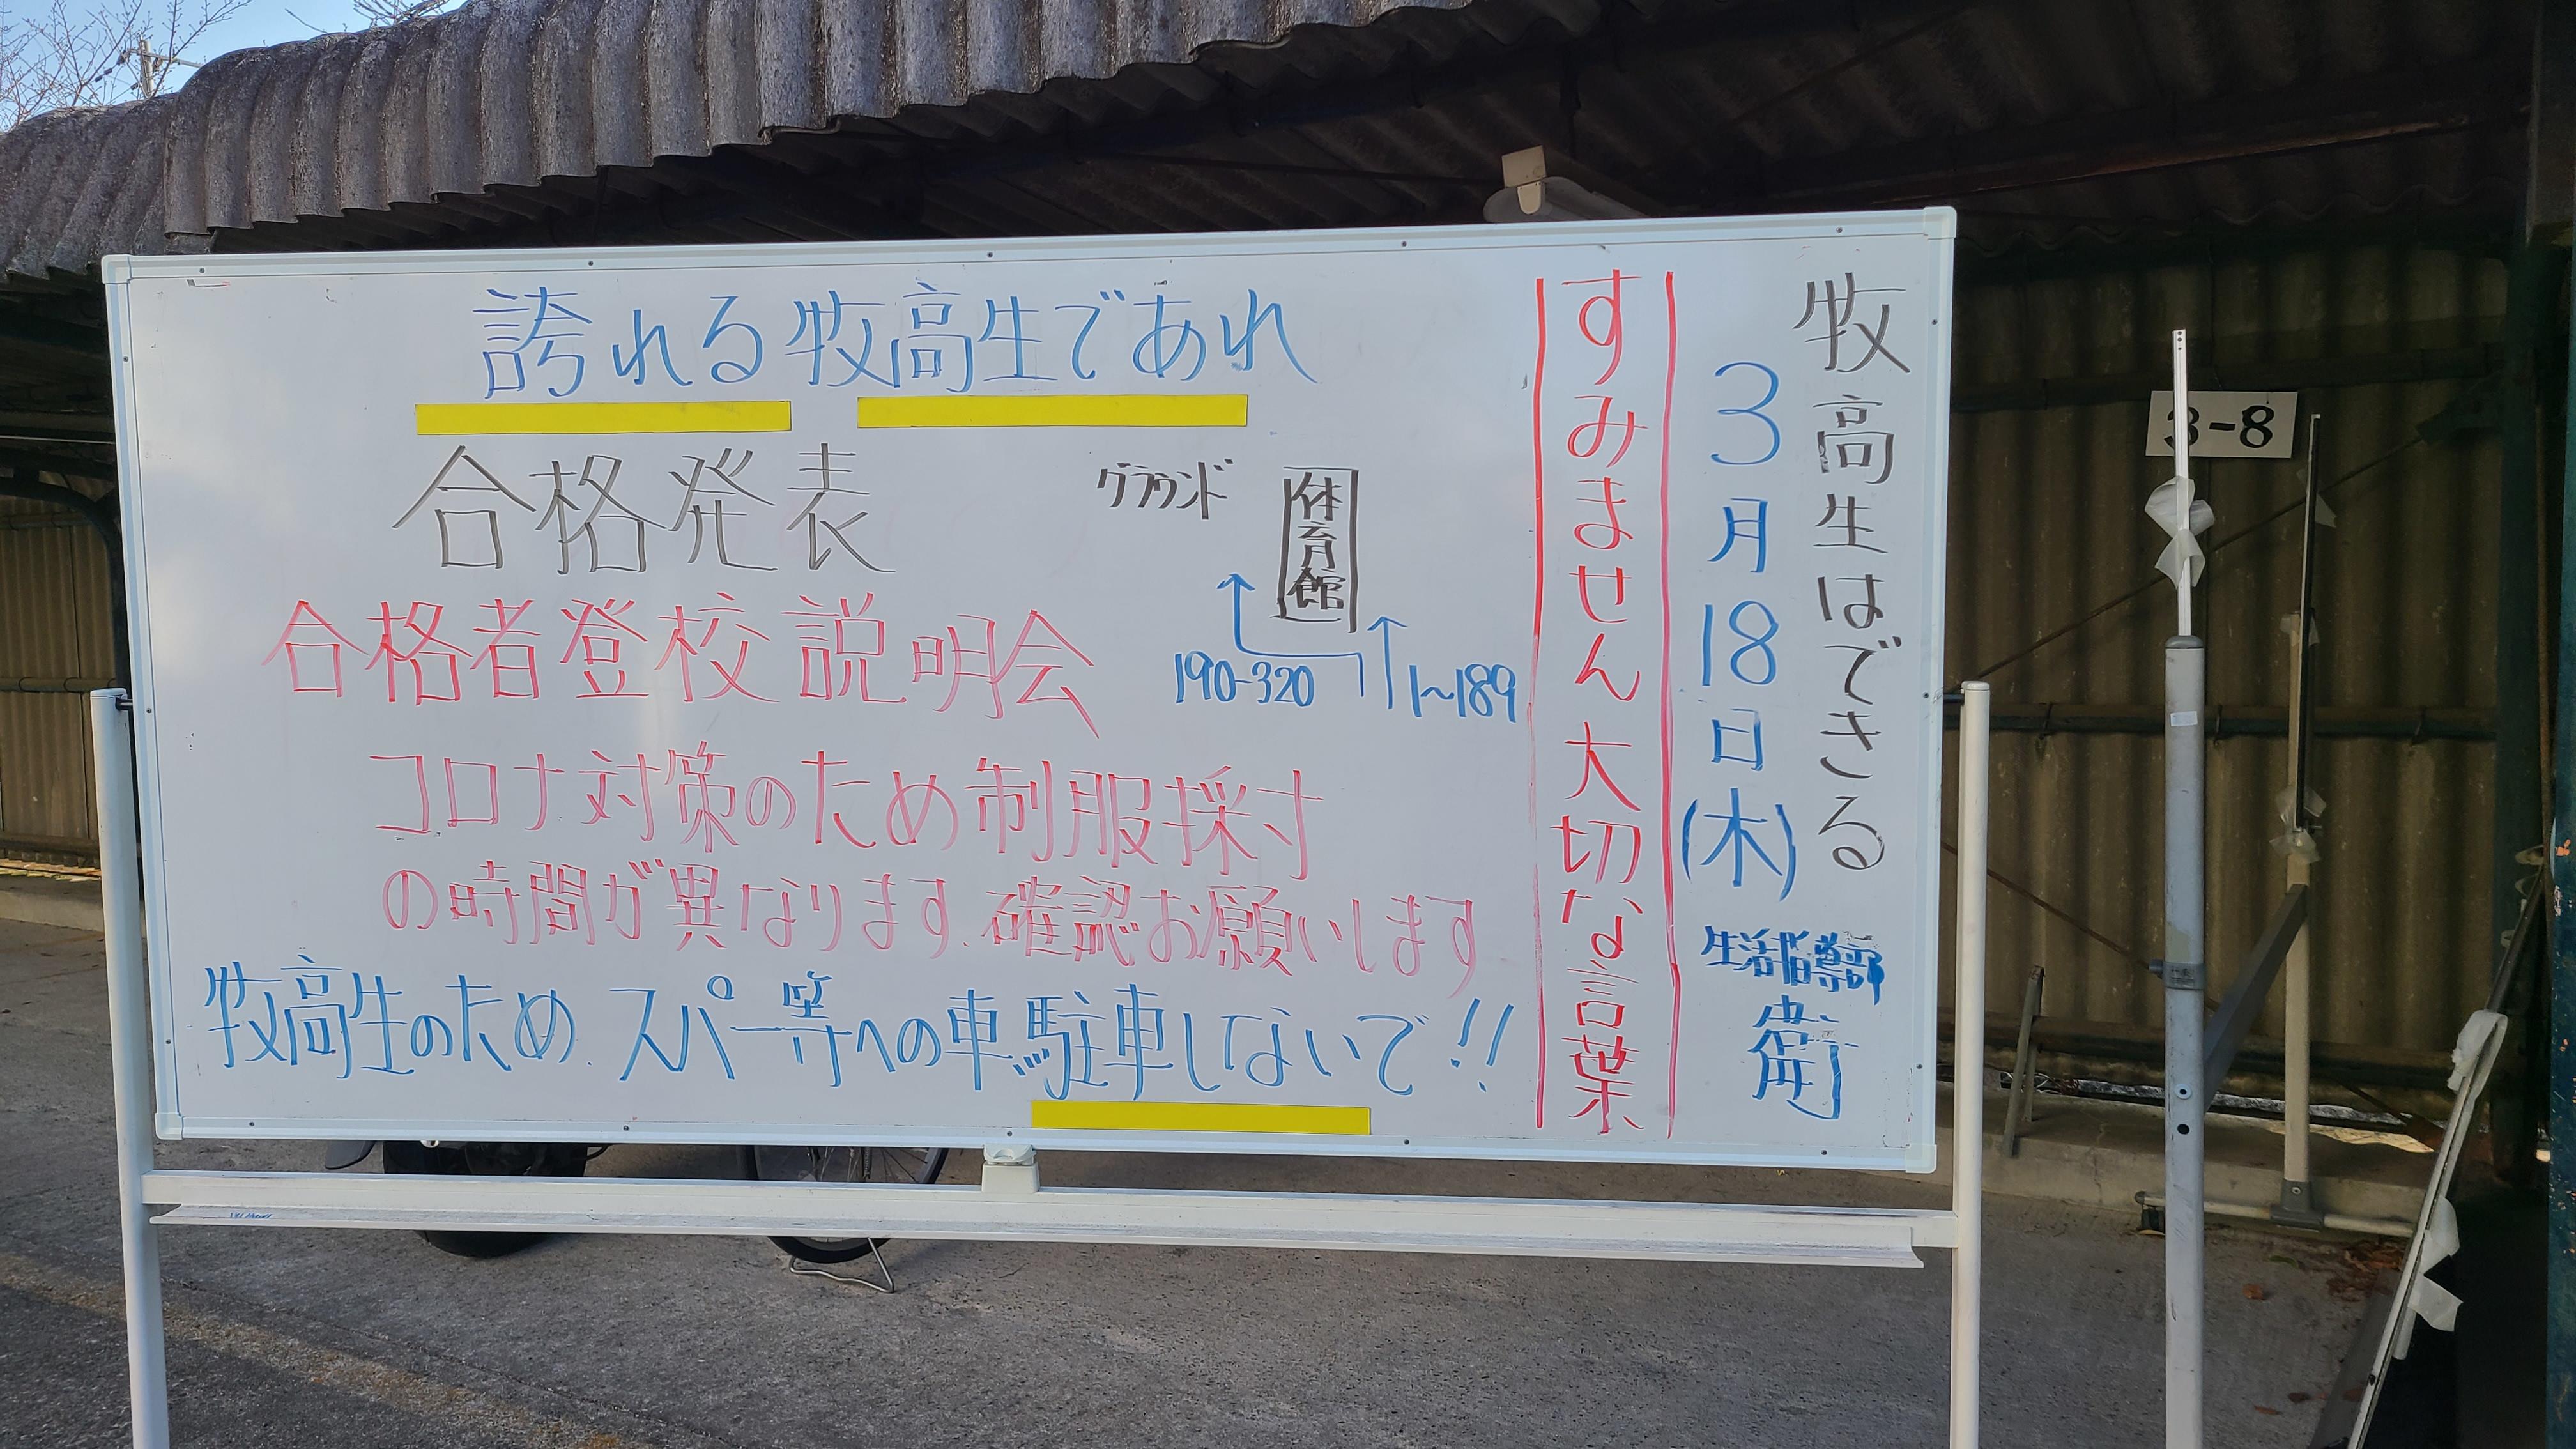 牧高生はできる
3月18日(木)
生活指導部
衛
すみません大切な言葉
誇れる牧高生であれ
合格発表
グラウンド
体育館
190-320
1~189
合格者登校説明会
コロナ対策のため制服採寸
の時間が異なります.確認お願いします
牧高生のため.スパー等への車駐車しないで!!
3-8